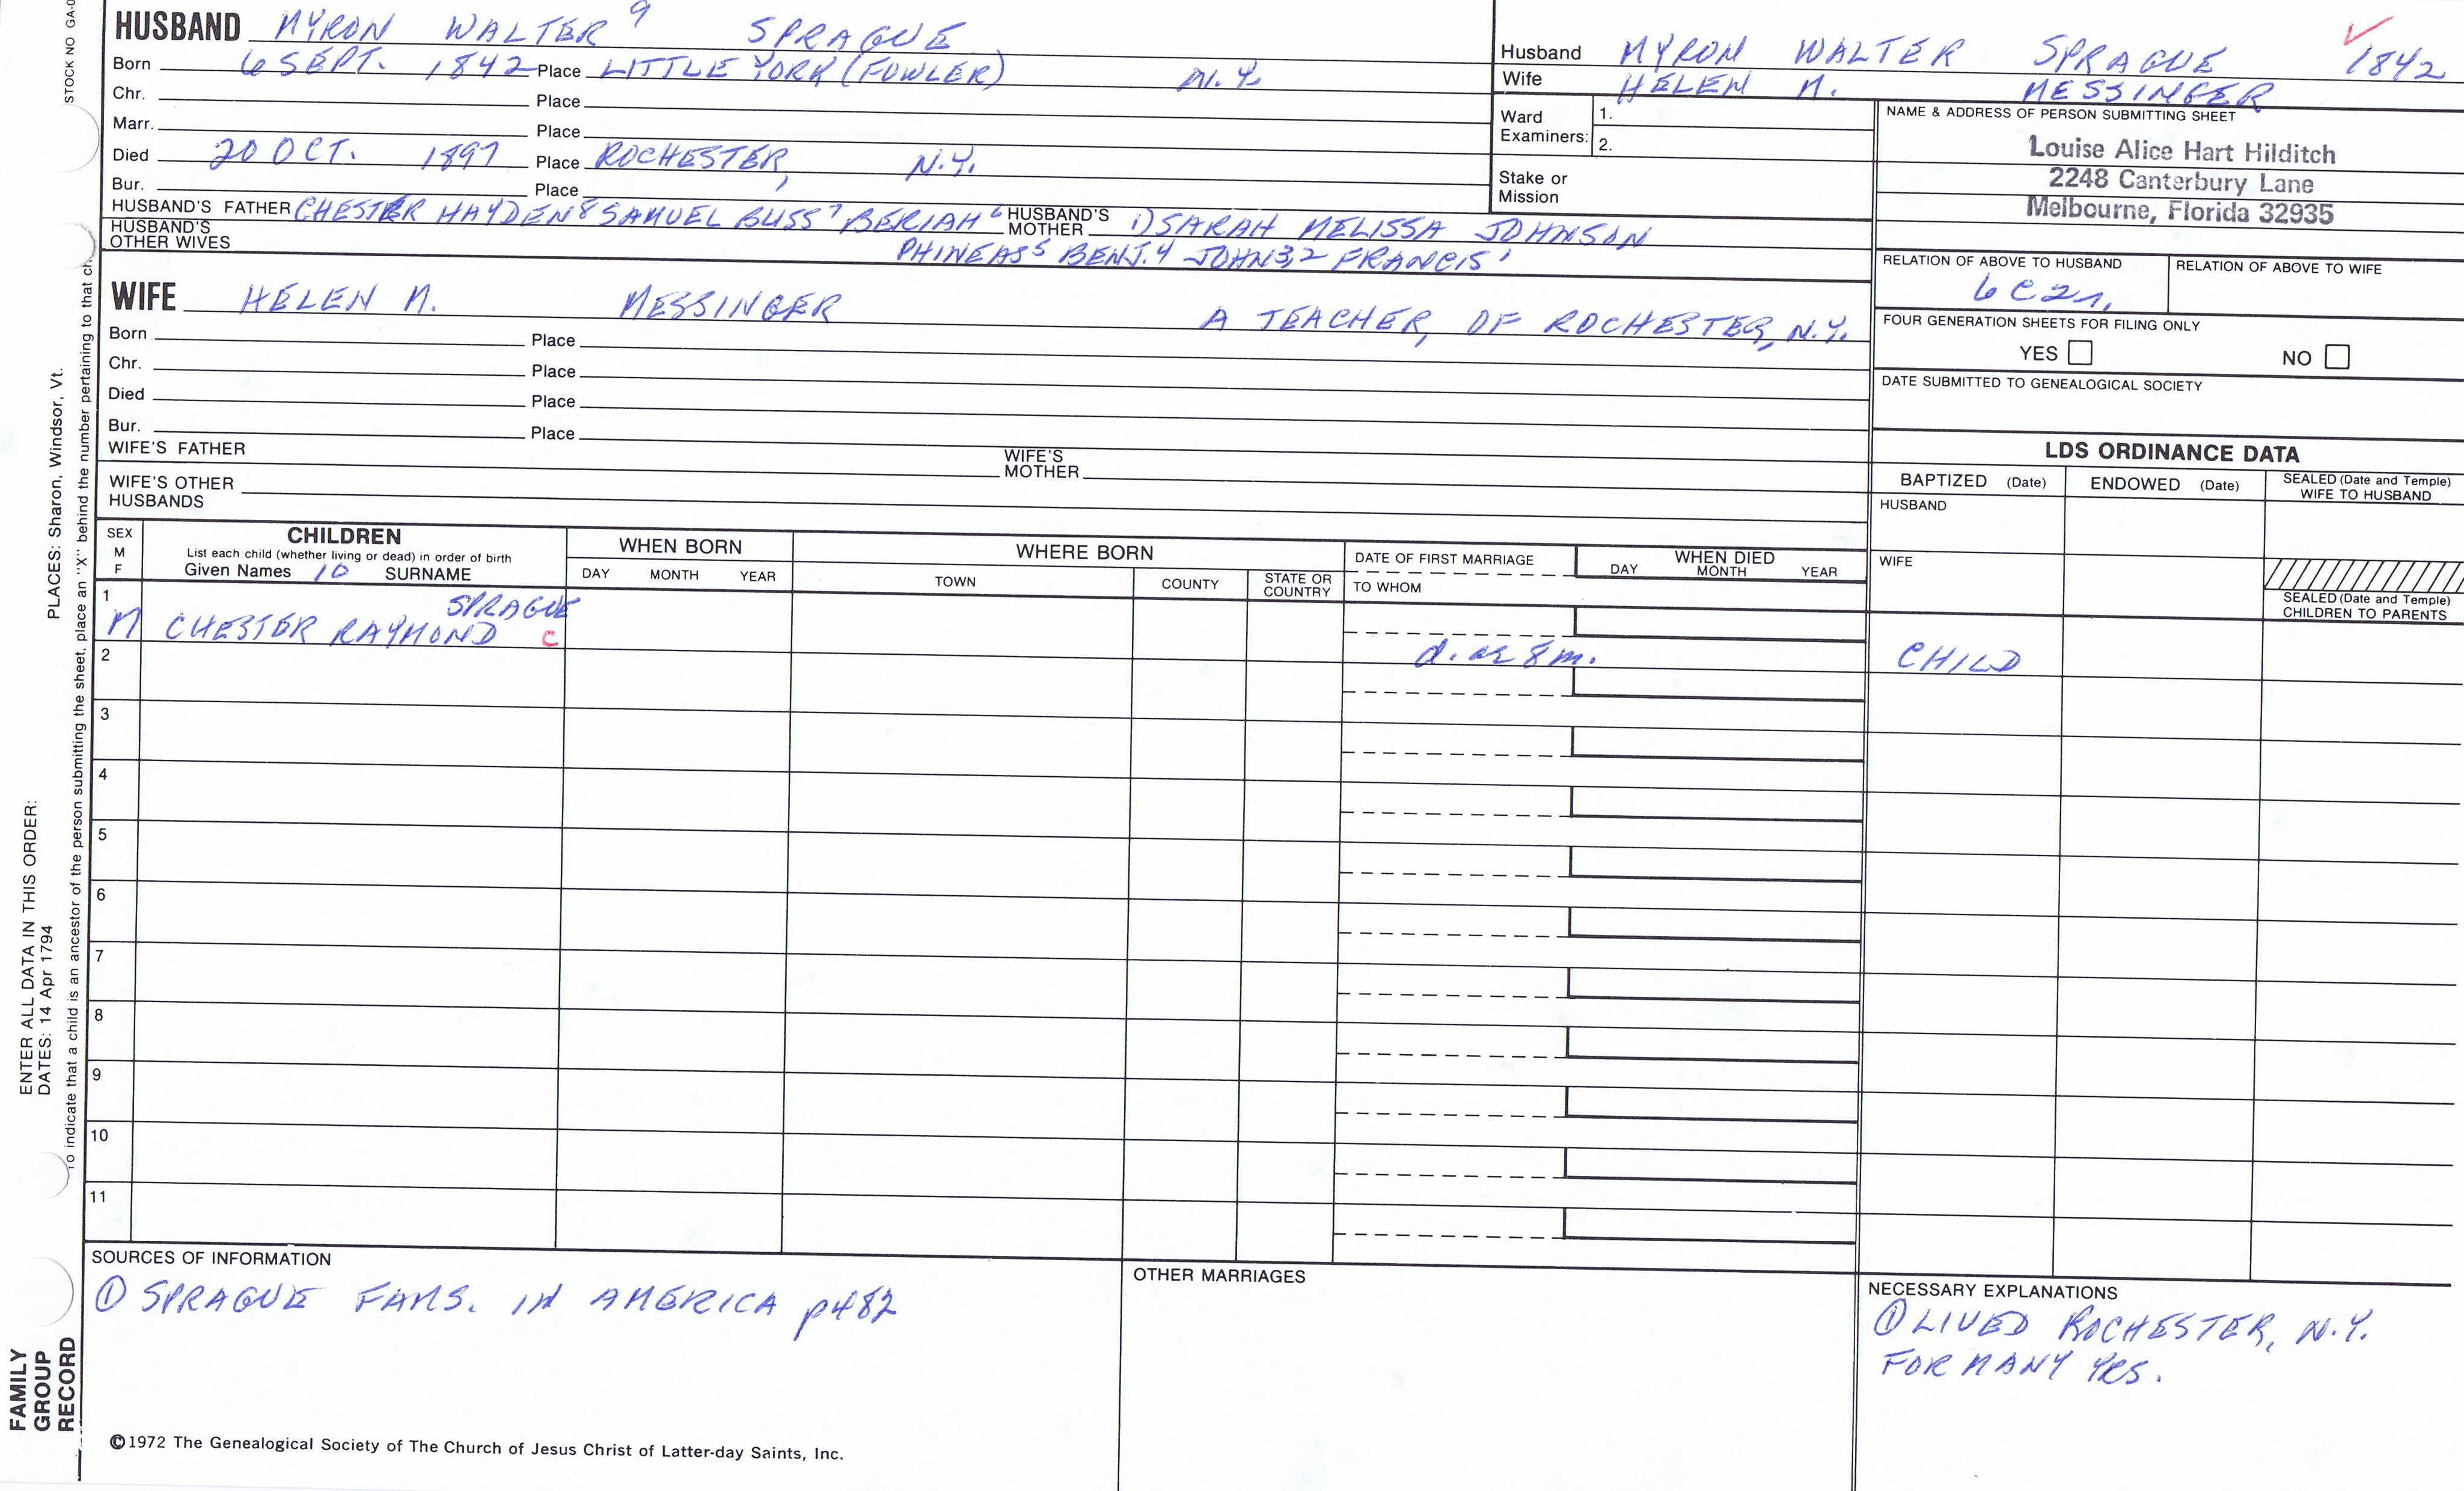 STOCK NO GA-0
HUSBAND MYRON WALTER 9 SPRAGUE
Born 6 SEPT. 1842 Place LITTLE YORK (FOWLER) N.Y.
Chr. Place
Marr. Place
Died 20 OCT. 1897 Place ROCHESTER, N.Y.
Bur. Place
HUSBAND'S FATHER CHESTER HAYDEN 8 SAMUEL BLISS 7 BERIAH 6 HUSBAND'S MOTHER 1) SARAH MELISSA JOHNSON
HUSBAND'S OTHER WIVES PHINEAS 5 BENJ. 4 JOHN 3,2 FRANCIS 1
WIFE HELEN M. MESSINGER A TEACHER, OF ROCHESTER, N.Y.
Born Place
Chr. Place
Died Place
Bur. Place
WIFE'S FATHER WIFE'S MOTHER
WIFE'S OTHER HUSBANDS
Husband MYRON WALTER SPRAGUE 1842
Wife HELEN M. MESSINGER
Ward Examiners: 1.
2.
Stake or Mission
NAME & ADDRESS OF PERSON SUBMITTING SHEET
Louise Alice Hart Hilditch
2248 Canterbury Lane
Melbourne, Florida 32935
RELATION OF ABOVE TO HUSBAND RELATION OF ABOVE TO WIFE
6C2r.
FOUR GENERATION SHEETS FOR FILING ONLY
YES NO
DATE SUBMITTED TO GENEALOGICAL SOCIETY
LDS ORDINANCE DATA
BAPTIZED (Date) ENDOWED (Date) SEALED (Date and Temple) WIFE TO HUSBAND
HUSBAND
WIFE
SEALED (Date and Temple) CHILDREN TO PARENTS
SEX M F CHILDREN WHEN BORN WHERE BORN DATE OF FIRST MARRIAGE WHEN DIED
List each child (whether living or dead) in order of birth
Given Names 10 SURNAME DAY MONTH YEAR TOWN COUNTY STATE OR COUNTRY TO WHOM DAY MONTH YEAR
1 SPRAGUE
M CHESTER RAYMOND C d. ae 8 m. CHILD
2
3
4
5
6
7
8
9
10
11
SOURCES OF INFORMATION
① SPRAGUE FAMS. IN AMERICA p482
OTHER MARRIAGES
NECESSARY EXPLANATIONS
① LIVED ROCHESTER, N.Y.
FOR MANY YRS.
©1972 The Genealogical Society of The Church of Jesus Christ of Latter-day Saints, Inc.
FAMILY
GROUP
RECORD
ENTER ALL DATA IN THIS ORDER:
DATES: 14 Apr 1794
PLACES: Sharon, Windsor, Vt.
To indicate that a child is an ancestor of the person submitting the sheet, place an "X" behind the number pertaining to that ch